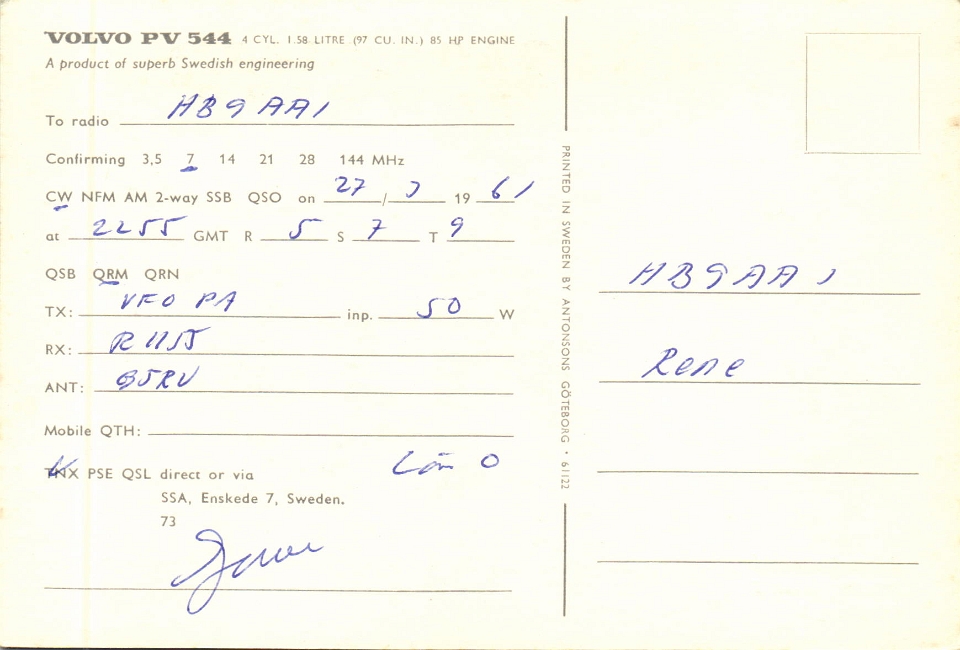 VOLVO PV 544 4 CYL. 1.58 LITRE (97 CU. IN.) 85 HP ENGINE
A product of superb Swedish engineering
To radio HB9AAI
Confirming 3,5 7 14 21 28 144 MHz
CW NFM AM 2-way SSB QSO on 27/ 19 61
at 2255 GMT R 5 S 7 T 9
QSB QRM QRN
TX: VFO PA inp. 50 W
RX: R1155
ANT: G5RV
Mobile QTH:
TNX PSE QSL direct or via
Län O
SSA, Enskede 7, Sweden.
73
PRINTED IN SWEDEN BY ANTONSONS GÖTEBORG · 61122
HB9AAI
Rene